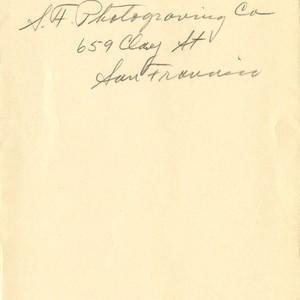 S. F. Photograving Co
659 Clay St
San Francisco